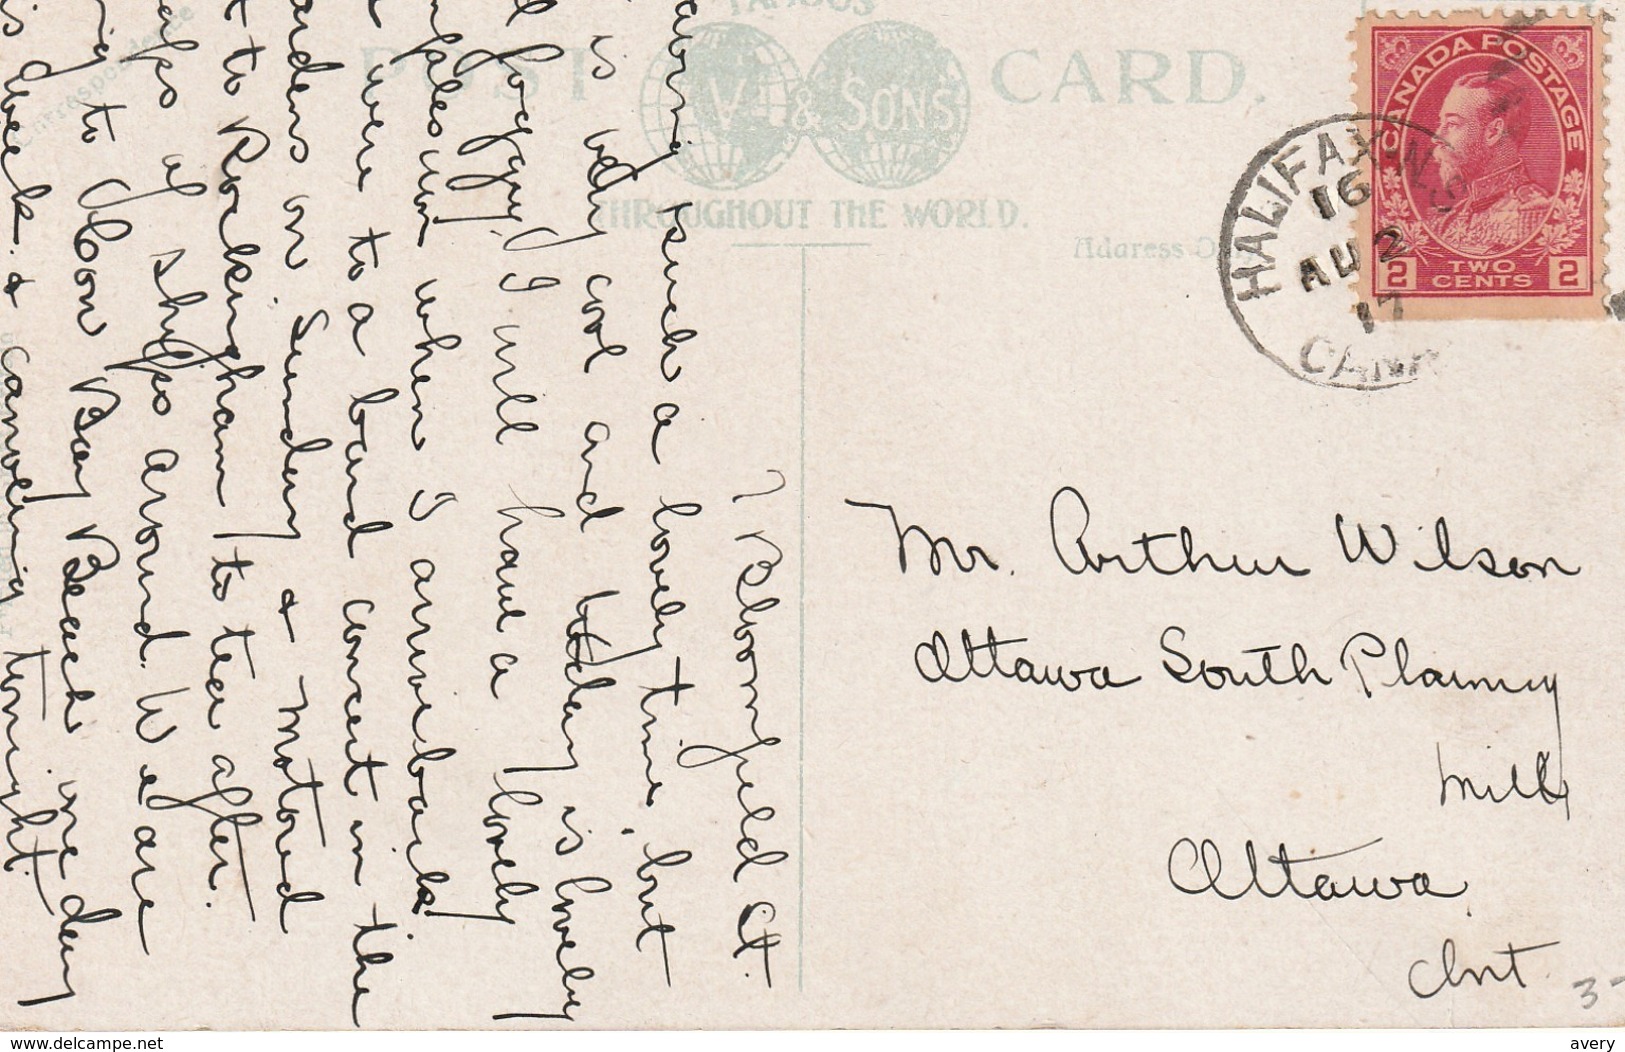 FAMOUS
POST CARD.
& SONS
THROUGHOUT THE WORLD.
Correspondence
Address Only
CANADA POSTAGE
2 TWO CENTS 2
HALIFAX N.S
16
AU 2
17
CANA
7 Bloomfield St.
aving such a lovely time, but
is very cool and today is lovely
d foggy. I will have a lovely
mplexion when I arrive back.
e were to a band concert in the
ardens on Sunday & motored
t to Rockingham to tea after.
of ships around. We are
ng to Cow Bay Beach one day
is week. & Canoeing tonight.
Mr. Arthur Wilson
Ottawa South Planing
Mills
Ottawa
Ont.
3-
www.delcampe.net
avery